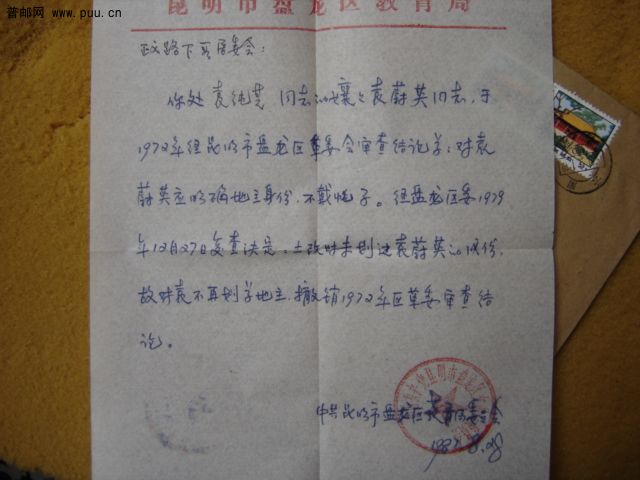 普邮网 www.puu.cn
昆明市盘龙区教育局
下 居委会：
你处袁纯英同志的孃孃袁蔚英同志，于
1972年经昆明市盘龙区革委会审查结论为：对袁
蔚英应明确地主身份，不戴帽子。经盘龙区委1979
年12月27日复查决定，土改时未划过袁蔚英的成份，
故对袁不再划为地主，撤销1972年区革委审查结
论。
中共昆明市盘龙区教育局委员会
198 .8.28